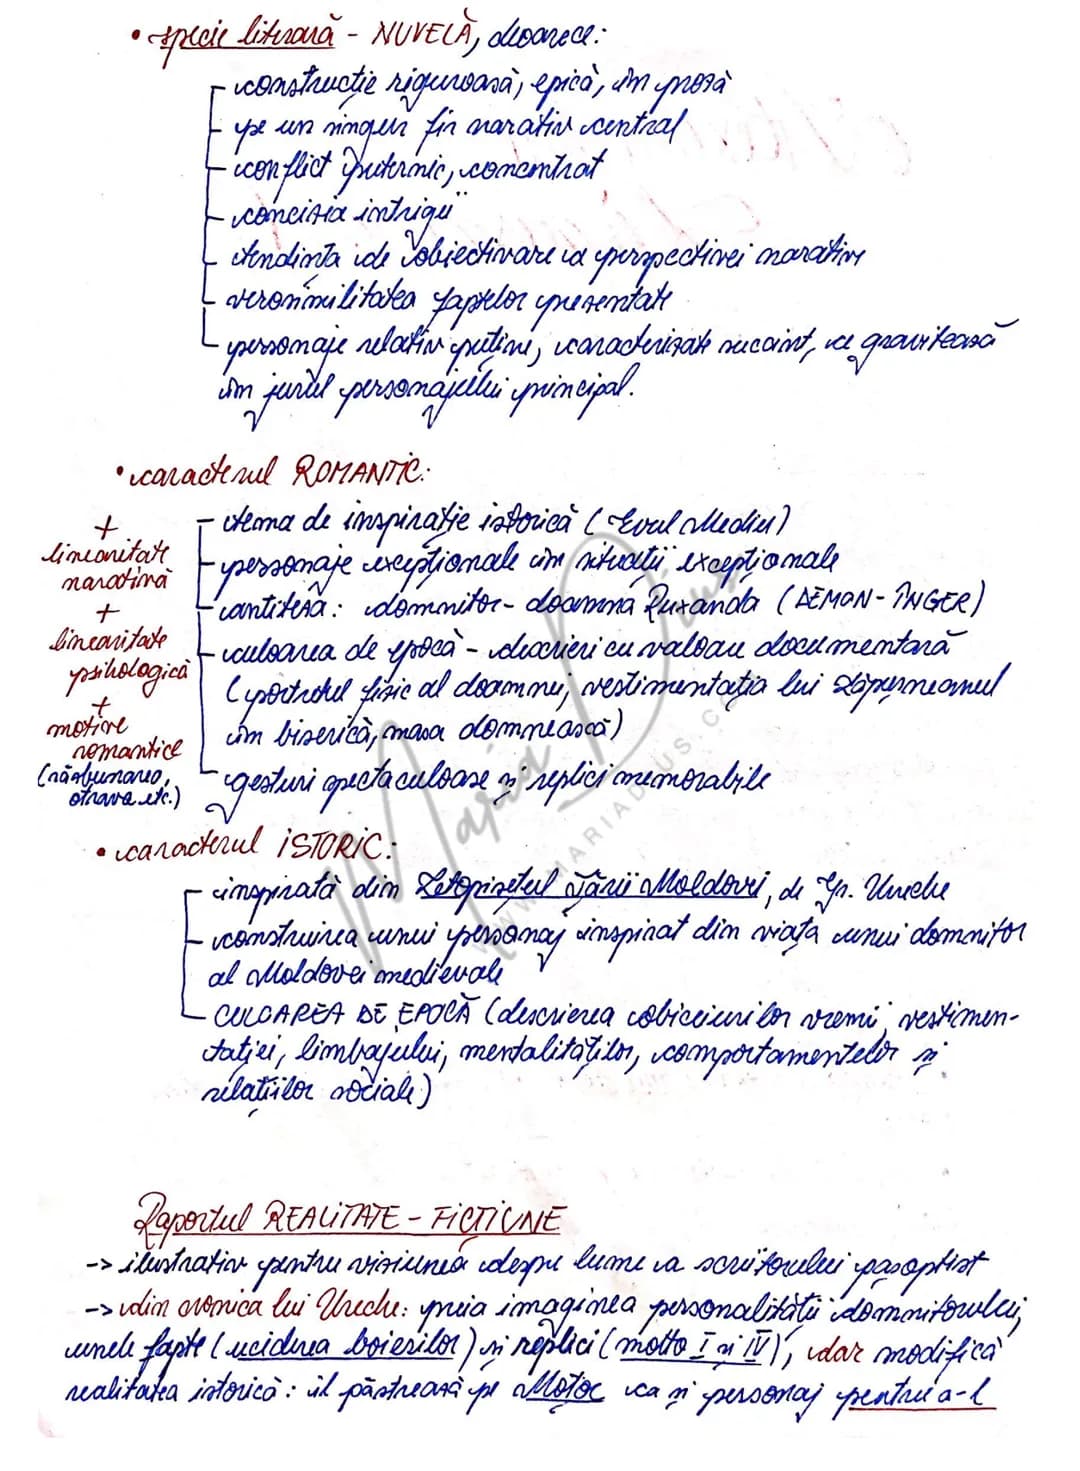 • specie literară - NUVELĂ, deoarece:
- construcție riguroasă, epică, în proză
- pe un singur fir narativ central
- conflict puternic, concentrat
- concizia intrigii
- tendința de obiectivare a perspectivei narative
- verosimilitatea faptelor prezentate
- personaje relativ puține, caracterizate succint, ce gravitează
în jurul personajului principal.
• caracterul ROMANTIC:
- tema de inspirație istorică (Evul Mediu)
- personaje excepționale în situații excepționale
- antiteză: domnitor - doamna Ruxanda (DEMON - ÎNGER)
- culoarea de epocă - descrieri cu valoare documentară
(portretul fizic al doamnei, vestimentația lui Lăpușneanul
în biserică, masa domnească)
- gesturi spectaculoase și replici memorabile
+
linearitate
narativă
+
linearitate
psihologică
+
motive
romantice
(răzbunarea,
otrava etc.)
• caracterul iSTORIC:
- inspirată din Letopisețul Țării Moldovei, de Gr. Ureche
- construirea unui personaj inspirat din viața unui domnitor
al Moldovei medievale
- CULOAREA DE EPOCĂ (descrierea obiceiurilor vremii, vestimen-
tației, limbajului, mentalităților, comportamentelor și
relațiilor sociale)
Raportul REALiTATE - FiCȚiUNE
-> ilustrativ pentru viziunea despre lume a scriitorului pașoptist
-> din cronica lui Ureche: preia imaginea personalității domnitorului,
unele fapte (uciderea boierilor) și replici (motto I și IV), dar modifică
realitatea istorică: îl păstrează pe Moțoc ca și personaj pentru a-l
Maria Dius
WWW.MARIADIUS.COM